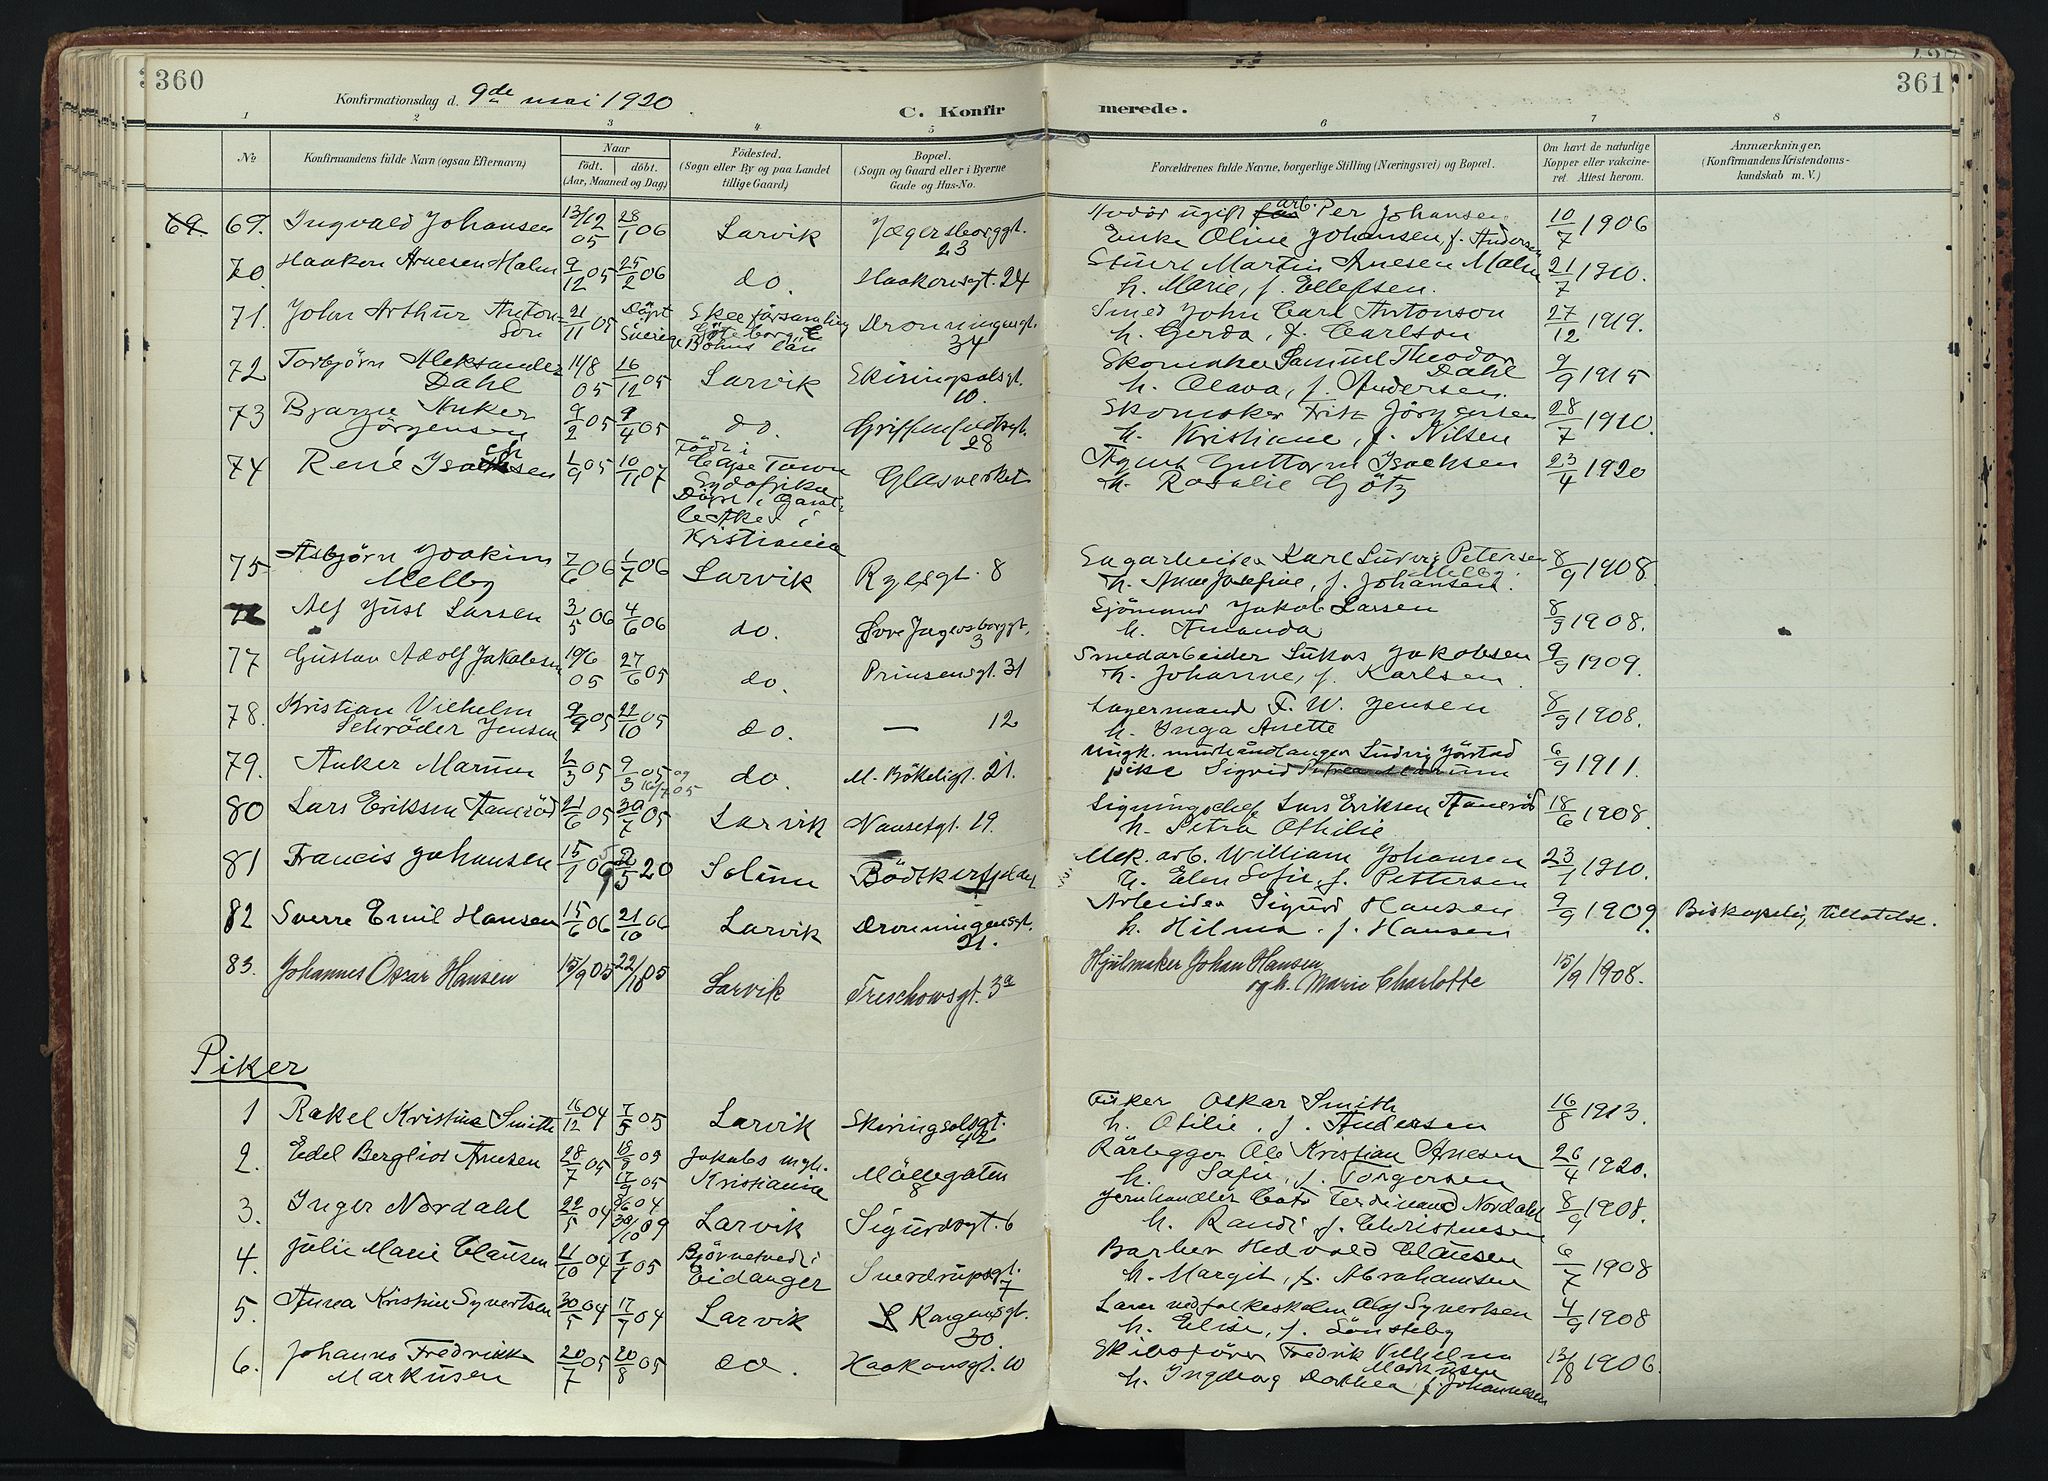 360
Konfirmationsdag d. 9de mai 1920
C. Konfir
merede.
361
1 2 3 4 5 6 7 8
No
Konfirmandens fulde Navn (ogsaa Efternavn)
Naar
födt. döbt.
(Aar, Maaned og Dag)
Födested.
(Sogn eller By og paa Landet
tillige Gaard)
Bopæl.
(Sogn og Gaard eller i Byerne
Gade og Hus-No.
Forældrenes fulde Navne, borgerlige Stilling (Næringsvei) og Bopæl.
Om havt de naturlige
Kopper eller vakcine-
ret. Attest herom.
Anmærkninger.
(Konfirmandens Kristendoms-
kundskab m. V.)
69. 69. Ingvald Johansen 13/12 05 28/1 06 Larvik Jægersborggt. 23 ugift arb. Per Johansen 10/7 1906
Enke Oline Johansen, f. Andersen
70. Haakon Arnesen Malm 9/12 05 25/2 06 do. Haakonsgt. 24 Stuert Martin Arnesen Malm 21/7 1910.
h. Marie, f. Ellefsen.
71. John Arthur Anton-
son 21/11 05 Döpt Sverige Skee församling
Göteborg &
Bohus län Dronningensgt. 34 Smed John Carl Antonson 27/12 1919.
h. Gerda, f. Carlson
72 Torbjörn Aleksander
Dahl 14/8 05 26/12 05 Larvik Skiringsalsgt. 10. Skomaker Samuel Theodor
Dahl 9/9 1915
h. Olava, f. Andersen.
73 Bjarne Anker
Jörgensen 9/2 05 9/4 05 do. Griffenfeldtsgt. 28 Skomaker Fritz Jörgensen 28/7 1910.
h. Kristiane, f. Nilsen
74 René Isachsen 1/9 05 10/11 07 Födt i
Cape Town
Sydafrika
Döpt i Gaml-
le Aker i
Kristiania Glasverket Guttorm Isachsen 23/4 1920
h. Rosalie Götz
75 Asbjörn Joakim
Melby 7/6 06 1/7 06 Larvik Ryesgt. 8 Sagarbeider Karl Ludvig Petersen
Melby. 8/9 1908.
h. Anna Josefine, f. Johansen.
Alf Just Larsen 3/5 06 4/6 06 do. Övre Jægersborggt. 3 Sjömand Jakob Larsen 8/9 1908.
h. Amanda
77 Gustav Adolf Jakobsen 19/6 05 27/6 05 do. Prinsensgt. 31 Smedarbeider Lukas Jakobsen 9/9 1909.
h. Johanne, f. Karlsen
78. Kristian Vilhelm
Schröder Jensen 9/9 05 22/10 05 do. — 12 Lagermand F. W. Jensen 8/9 1908.
h. Inga Anette
79. Anker Marum 2/3 05 9/3 05 og 16/7 05 do. M. Bökeligt. 21. Ungk. murhåndlanger Ludvig Jörstad 6/9 1911.
pike Sigrid
80 Lars Eriksen Haneröd 21/6 05 30/7 05 Larvik Nansetgt. 19. Ligningschef Lars Eriksen Haneröd 18/6 1908.
h. Petra Othilie
81 Francis Johansen 15/1 2/5 20 Solum Bödkerfjeldet Mek. arb. William Johansen 23/1 1910.
h. Elen Sofie, f. Pettersen
82 Sverre Emil Hansen 15/6 06 21/10 06 Larvik Dronningensgt. 21. Arbeider Sigurd Hansen 9/9 1909. Biskopelig tillatelse.
h. Hilma, f. Hansen
83. Johannes Oscar Hansen 15/9 05 22/10 05 Larvik Treschowsgt. 3a Hjulmaker Johan Hansen 15/9 1908.
og h. Marie Charlotte
Piker
1 Rakel Kristine Smith 16/12 04 7/5 05 Larvik Skiringsalsgt. 42 Oskar Smith 16/8 1913.
h. Otilie, f. Andersen
2. Edel Bergliot Arnesen 28/7 05 17/9 05 Jakobs mgh.
Kristiania Möllegaten 8 Rörlegger Ole Kristian Arnesen 26/4 1920.
h. Sofie, f. Torgersen
3. Inger Nordahl 22/5 04 30/10 09 Larvik Sigurdsgt. 6 Jernhandler Cato Ferdinand Nordahl 8/9 1908.
h. Randi f. Christensen
4. Julie Marie Clausen 21/10 04 1/1 05 Björnetvedt i
Eidanger Sverdrupsgt. 7 Barber Hedvald Clausen 6/7 1908
h. Margit, f. Abrahamsen
5. Anna Kristine Syvertsen 30/5 04 17/7 04 Larvik Kongensgt. 30 Lærer ved folkeskolen Olaf Syvertsen 4/9 1908
h. Elise, f. Lönsteby
6. Johanne Fredrikke
Markusen 20/7 05 20/8 05 do. Haakonsgt. 10 Skibsförer Fredrik Vilhelm
Markusen 13/8 1906.
h. Ingeborg Dorthea f. Johannesen